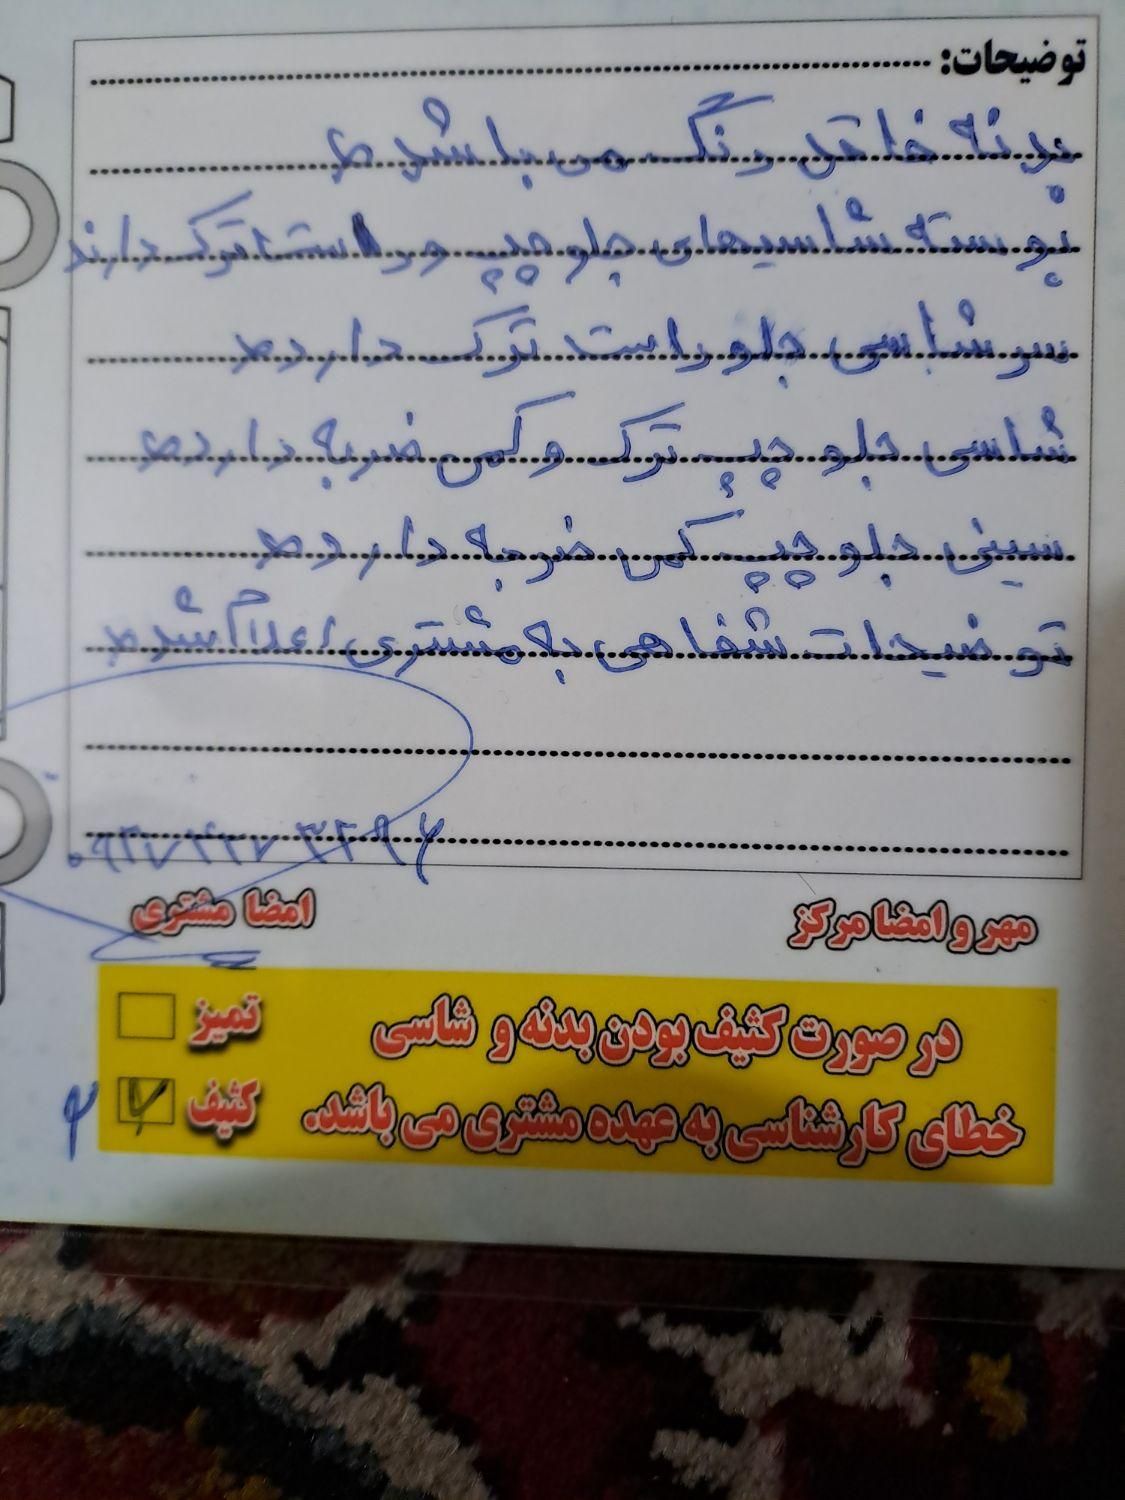 توضیحات:
بدنه فاقد رنگ می باشد
پوسته شاسیهای جلو چپ و راست ترک دارند
سرشاسی جلو راست ترک دارد
شاسی جلو چپ ترک و کمی ضربه دارد
سینی جلو چپ کمی ضربه دارد
توضیحات شفاهی به مشتری اعلام شد
مهر و امضا مرکز
امضا مشتری
در صورت کثیف بودن بدنه و شاسی
تمیز
خطای کارشناسی به عهده مشتری می باشد.
کثیف